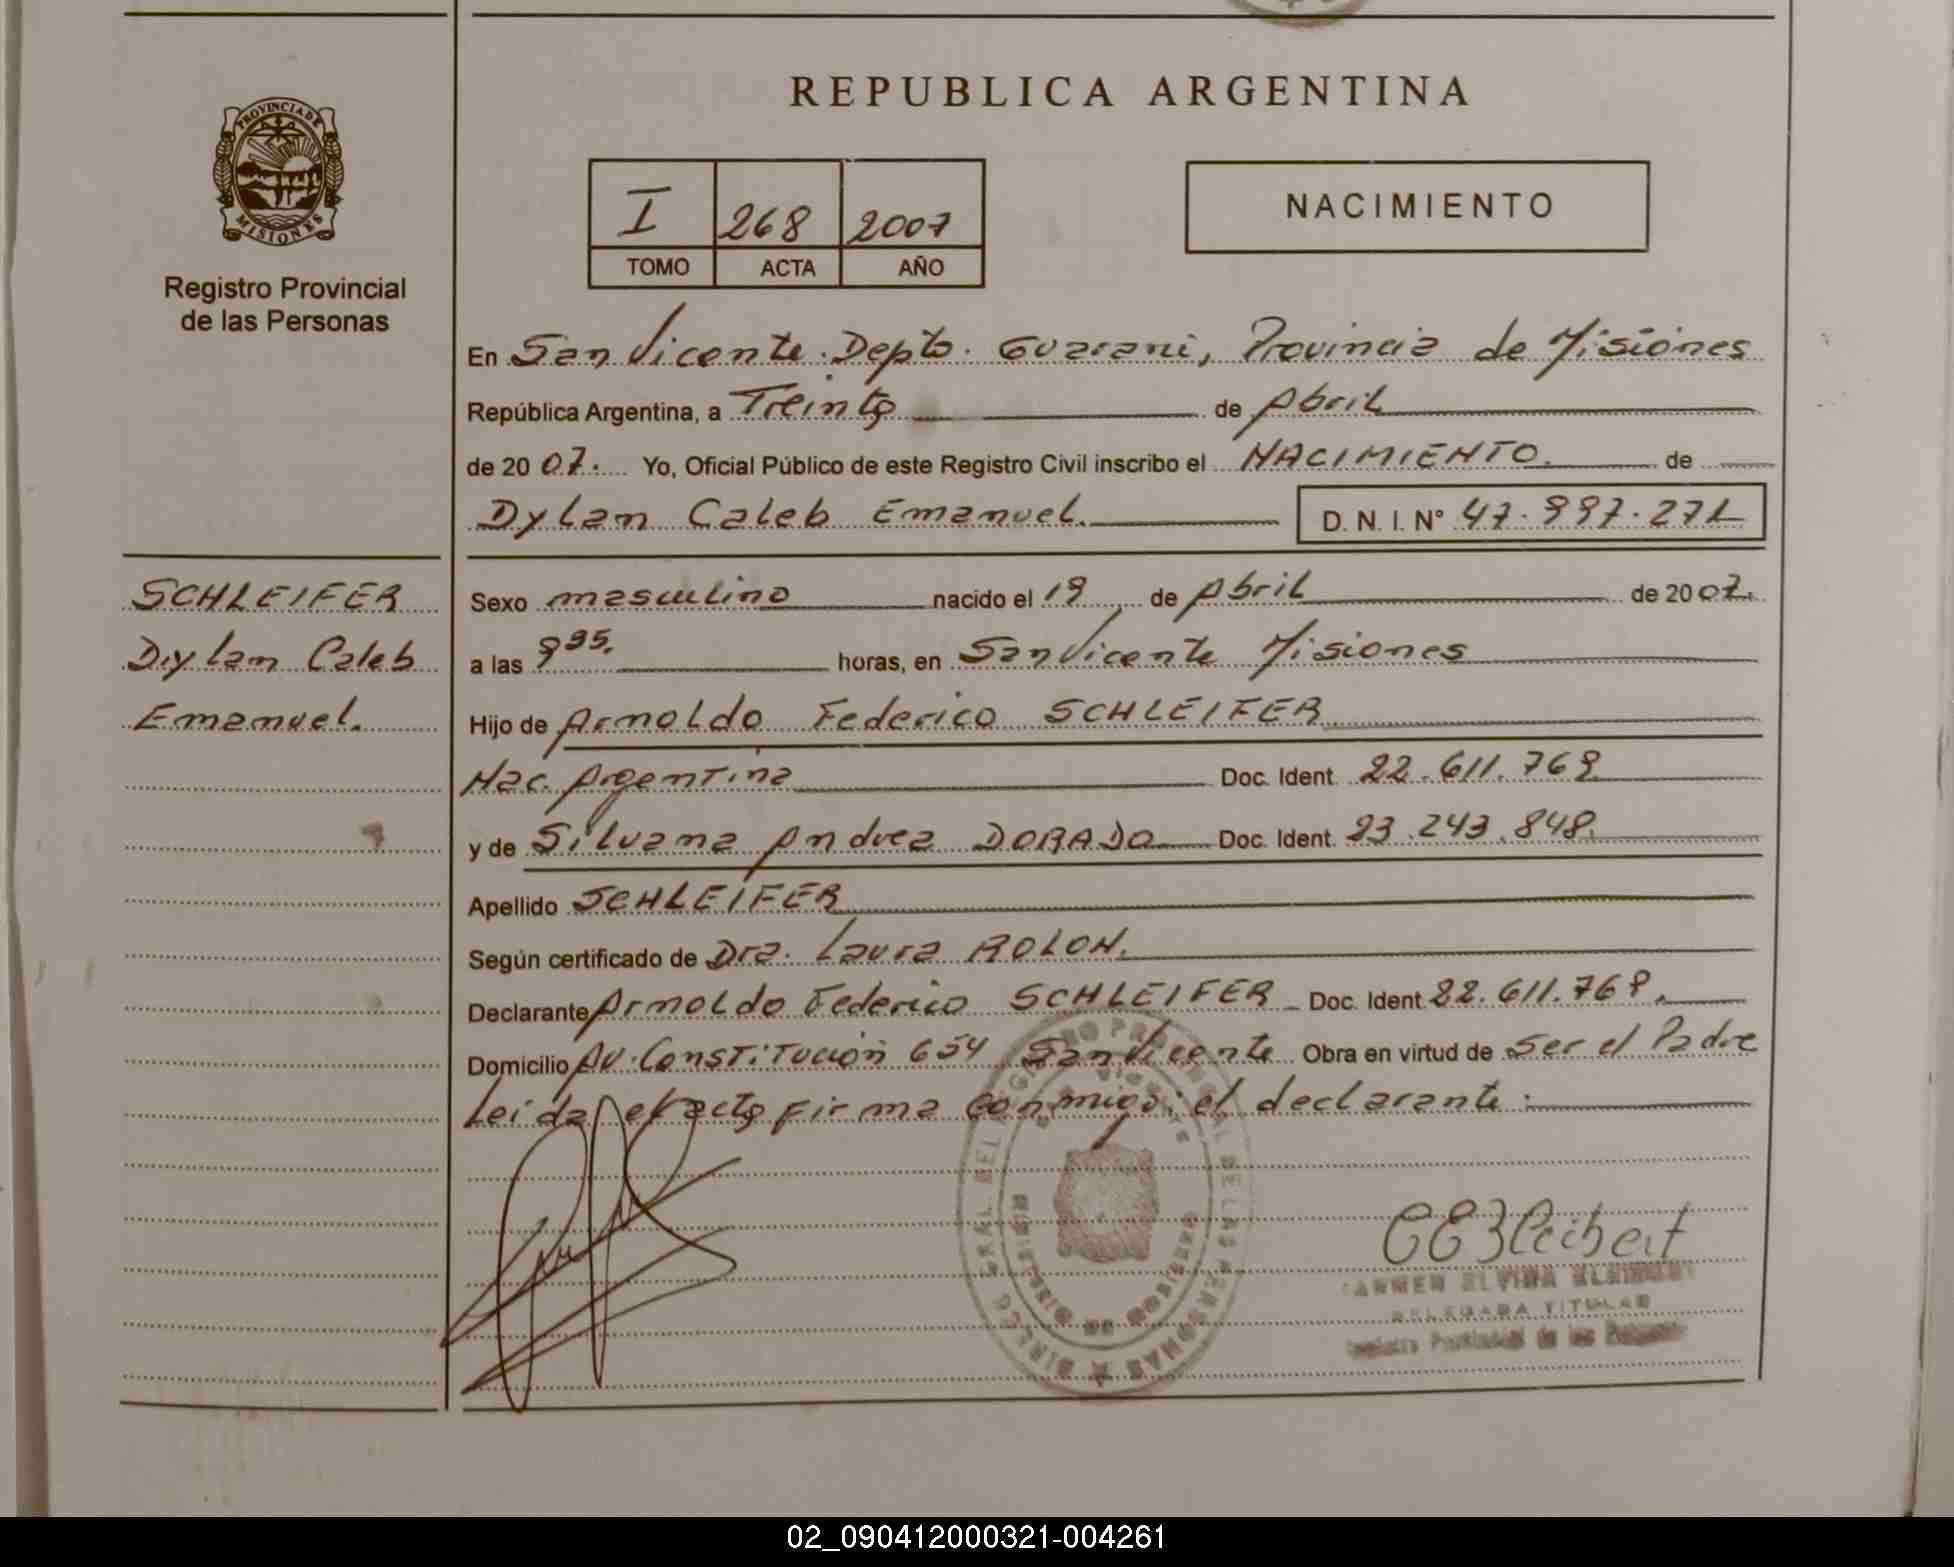 REPUBLICA ARGENTINA
PROVINCIA DE
MISIONES
Registro Provincial
de las Personas
I 268 2007
TOMO ACTA AÑO
NACIMIENTO
En San Vicente. Depto. Guarani, Provincia de Misiones
República Argentina, a Treinta de Abril
de 2007. Yo, Oficial Público de este Registro Civil inscribo el NACIMIENTO. de
Dylan Caleb Emanuel. D. N. I. Nº 47.997.271
SCHLEIFER
Dylan Caleb
Emanuel.
Sexo masculino nacido el 19 de Abril de 2007.
a las 9 35. horas, en San Vicente Misiones
Hijo de Arnoldo Federico SCHLEIFER
Nac. Argentina Doc. Ident. 22.611.769
y de Silvana Andrea DORADO Doc. Ident. 23.243.848.
Apellido SCHLEIFER
Según certificado de Dra. Laura ROLON.
Declarante Arnoldo Federico SCHLEIFER Doc. Ident. 22.611.769.
Domicilio Av. Constitución 654 San Vicente Obra en virtud de ser el Padre
Leida el acta firma conmigo: el declarante:
CARMEN ELVIRA
DELEGADA TITULAR
Provincial de las Personas
02_090412000321-004261